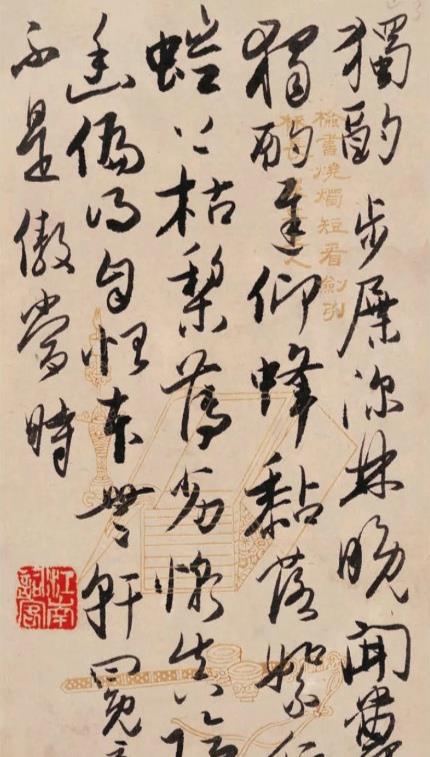 獨酌 步屧深林晚開
獨酌遲仰蜂黏落絮行
蟻上枯梨薄劣慚真隱
幽偏得自怡本無軒冕
不是傲當時
檢書燒燭短看劍引
杯長
江南